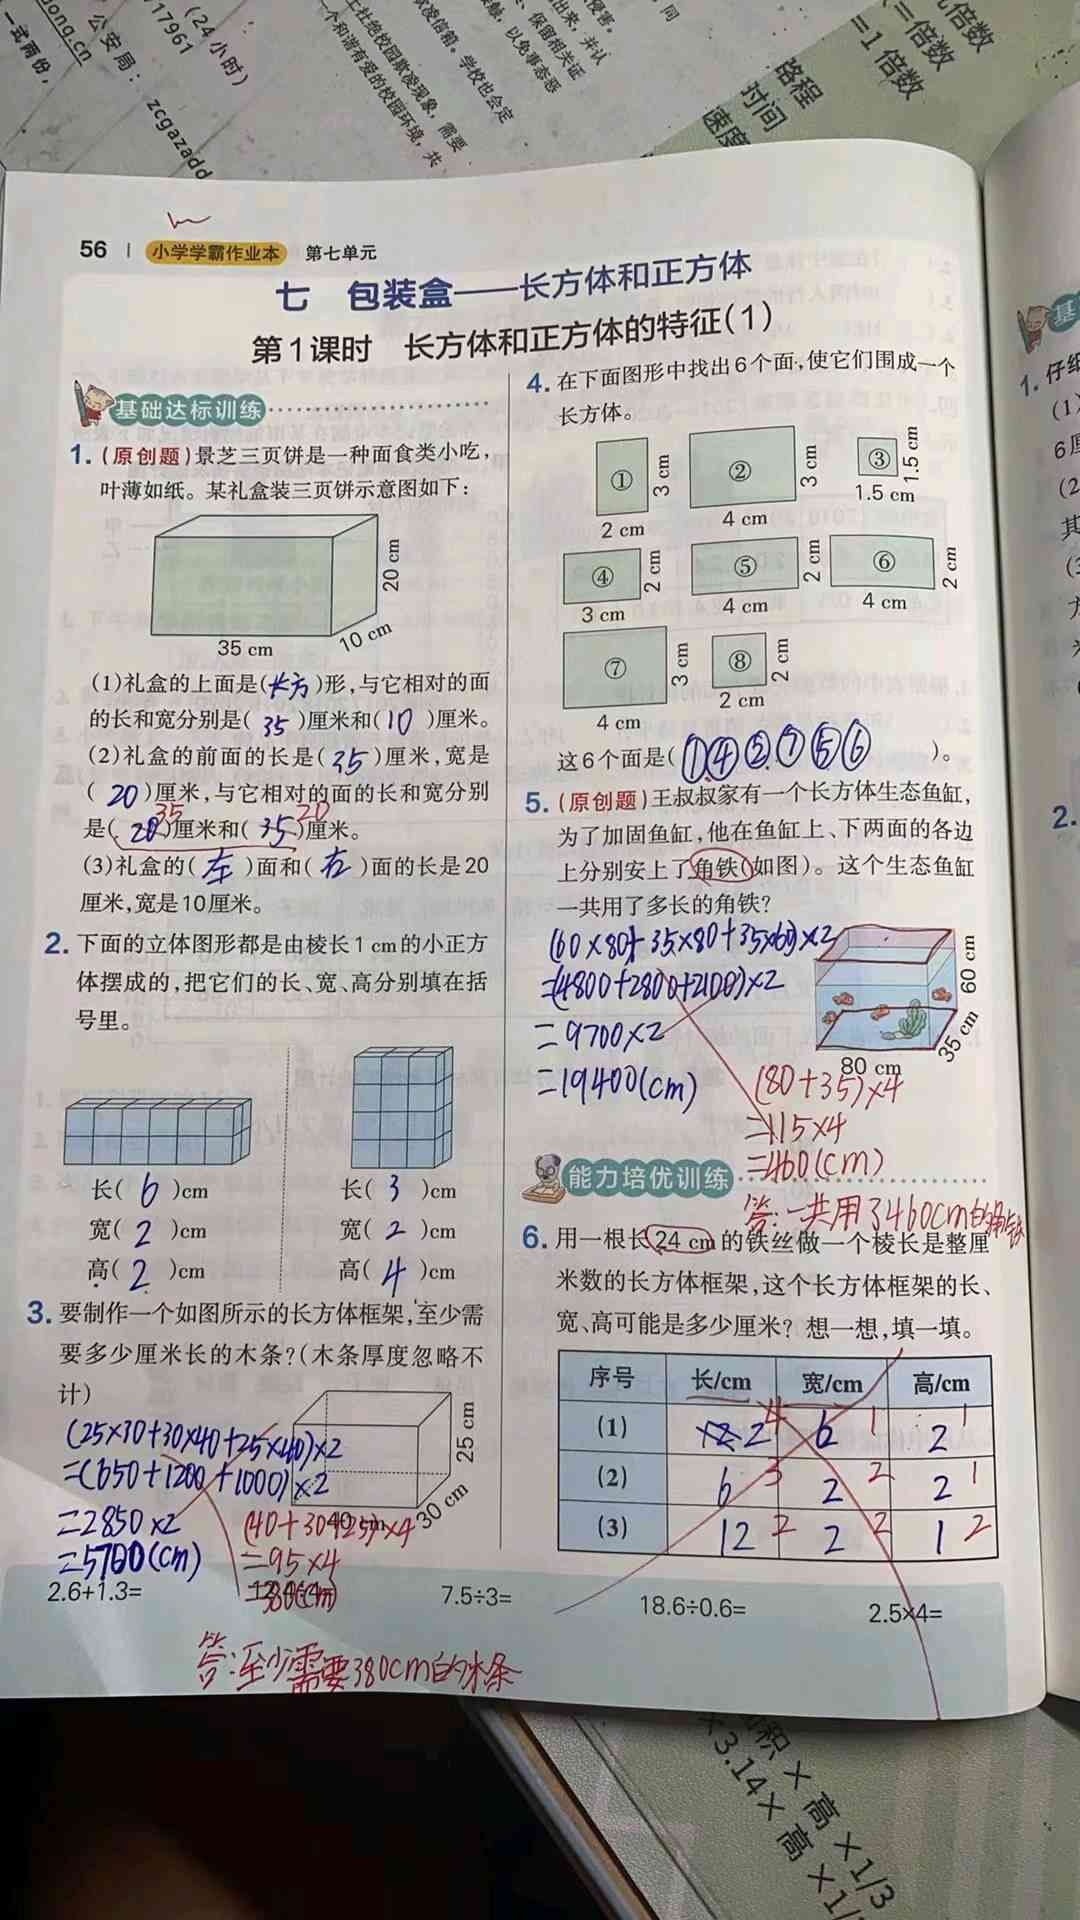 (24小时)
公安局：
zcgazadd
ong.cn
17961
一式两份，
路程
时间
速度
=1倍数
=倍数
56 | 小学学霸作业本 第七单元
七 包装盒——长方体和正方体
第1课时 长方体和正方体的特征(1)
基础达标训练
1. (原创题)景芝三页饼是一种面食类小吃，
叶薄如纸。某礼盒装三页饼示意图如下：
20 cm
35 cm
10 cm
(1)礼盒的上面是(长方)形，与它相对的面
的长和宽分别是( 35 )厘米和(10 )厘米。
(2)礼盒的前面的长是( 35 )厘米，宽是
( 20 )厘米，与它相对的面的长和宽分别
35 20
是( 20 )厘米和( 35 )厘米。
(3)礼盒的( 左 )面和( 右 )面的长是20
厘米，宽是10厘米。
2. 下面的立体图形都是由棱长1 cm的小正方
体摆成的，把它们的长、宽、高分别填在括
号里。
长( 6 )cm 长( 3 )cm
宽( 2 )cm 宽( 2 )cm
高( 2 )cm 高( 4 )cm
3. 要制作一个如图所示的长方体框架，至少需
要多少厘米长的木条？(木条厚度忽略不
计)
25 cm
40 cm
30 cm
(25×30+30×40+25×40)×2
=(650+1200+1000)×2
=2850×2
=5700(cm)
(40+30+25)×4
=95×4
=380(cm)
答：至少需要380cm的木条
4. 在下面图形中找出6个面，使它们围成一个
长方体。
① 3 cm 2 cm
② 3 cm 4 cm
③ 1.5 cm 1.5 cm
④ 2 cm 3 cm
⑤ 2 cm 4 cm
⑥ 2 cm 4 cm
⑦ 3 cm 4 cm
⑧ 2 cm 2 cm
这6个面是( ①④②⑦⑤⑥ )。
5. (原创题)王叔叔家有一个长方体生态鱼缸，
为了加固鱼缸，他在鱼缸上、下两面的各边
上分别安上了角铁(如图)。这个生态鱼缸
一共用了多长的角铁？
(60×80+35×80+35×60)×2
=(4800+2800+2100)×2
=9700×2
=19400(cm)
60 cm
35 cm
80 cm
(80+35)×4
=115×4
=460(cm)
答：一共用了460cm的角铁
能力培优训练
6. 用一根长24 cm的铁丝做一个棱长是整厘
米数的长方体框架，这个长方体框架的长、
宽、高可能是多少厘米？想一想，填一填。
序号 长/cm 宽/cm 高/cm
(1) 2 4 6 1 2 1
(2) 6 3 2 2 2 1
(3) 12 2 2 2 1 2
2.6+1.3= 7.5÷3= 18.6÷0.6= 2.5×4=